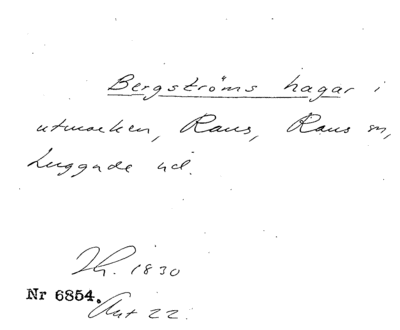 Bergströms hagar i
utmarken, Raus, Raus sn,
Luggude hd.
Th. 1830
Nr 6854.
Akt 22.